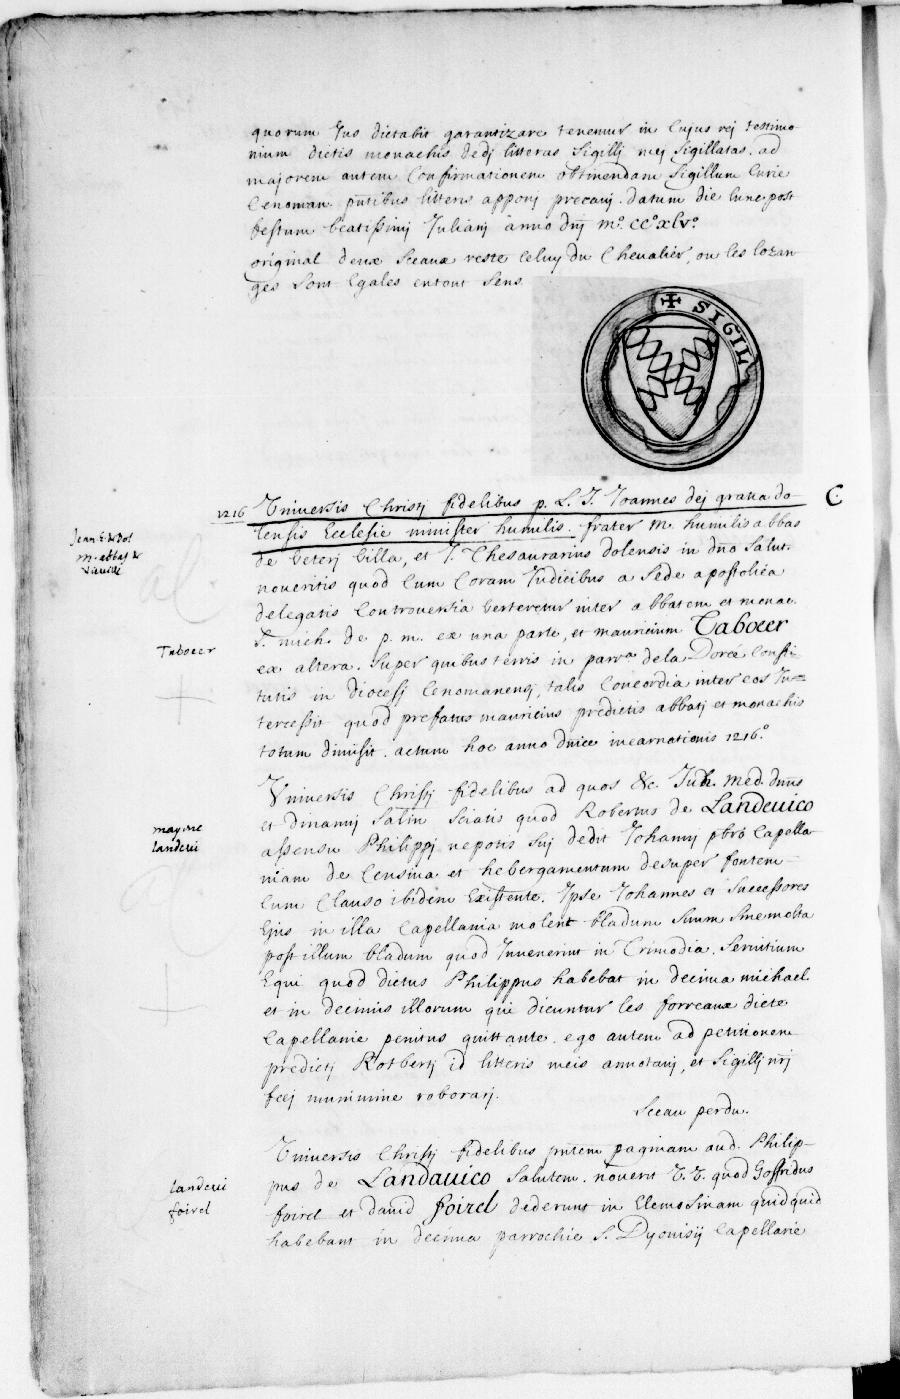 quorum Jus dictabit garantizare tenemur in Cujus rej testimo-
nium dictis monachis dedj litteras Sigillj mej Sigillatas. ad
majorem autem Confirmationem obtinendam Sigillum Curie
Cenoman. pntibus litteris apponj precavj. datum die lune post
festum beatissimj Julianj anno dnj m.º ccº xlvº.
original deux Sceaux reste Celuy du Chevalier, ou les lozan-
ges sont Egales entout Sens.
✠ SIGIL
1216 Universis Christj fidelibus p. L. J. Joannes dej gratia do- C.
Jean E. de Dol
lensis Ecclesie minister humilis. frater M. humilis abbas
M. abbas de
Vieuville
de Veterj Villa, et J. Thesaurarius Dolensis in dno Salut.
noveritis quod Cum Coram Judicibus a Sede apostolica
al.
delegatis Controversia verteretur inter abbatem et monac.
S. mich. de p. m. ex una parte, et mauricium Taboeer
Taboeer
ex altera. Super quibus terris in parrª dela Dorée Consti-
tutis in diocesj Cenomanensj, talis Concordia inter eos In-
tercessit quod prefatus mauricius predictis abbatj et monachis
totum dimisit. actum hoc anno dnice incarnationis 1216.º
Universis Christj fidelibus ad quos &c. Juh. Med. dnus
et dinannj Salm Sciatis quod Robertus de Landevico
mayne
landevi
assensu Philippj nepotis Suj dedit Johannj pbro Capella-
niam de Censiva et hebergamentum desuper fontem
al.
Cum Clauso ibidem Existente. Ipse Johannes et Successores
Ejus in illa Capellania molent bladum Suum Sine molta
post illum bladum quod Invenerint in Trimodia. Servitium
Equi quod dictus Philippus habebat in decima michael.
et in decimis illorum qui dicuntur les forreaux dicte
Capellanie penitus quittante. ego autem ad petitionem
predictj Rotbertj id litteris meis annotavj, et Sigillj nrj
fecj munimine roborarj.
Sceau perdu.
Universis Christj fidelibus pntem paginam aud. Philip-
pus de Landavico Salutem. noverit U. U. quod Goffridus
landevi
foirel
foirel et david foirel dederunt in Elemosinam quidquid
habebant in decima parrochie S. Dyonisij Capellanie